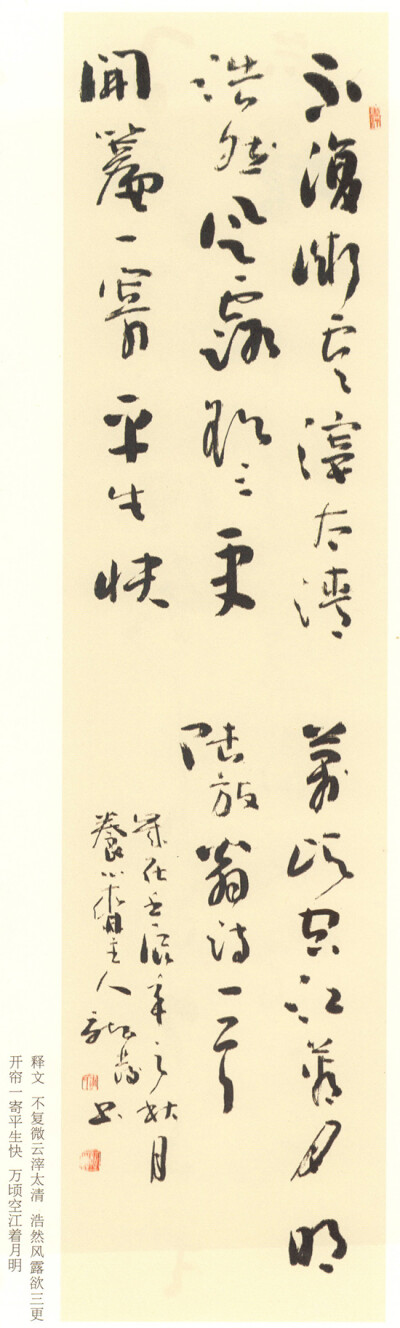 不復微雲滓太清
浩然風露欲三更
開簾一寄平生快
萬頃空江著月明
陸放翁詩一首
歲在壬辰年之秋月
養心齋主人 書
释文 不复微云滓太清 浩然风露欲三更
开帘一寄平生快 万顷空江着月明